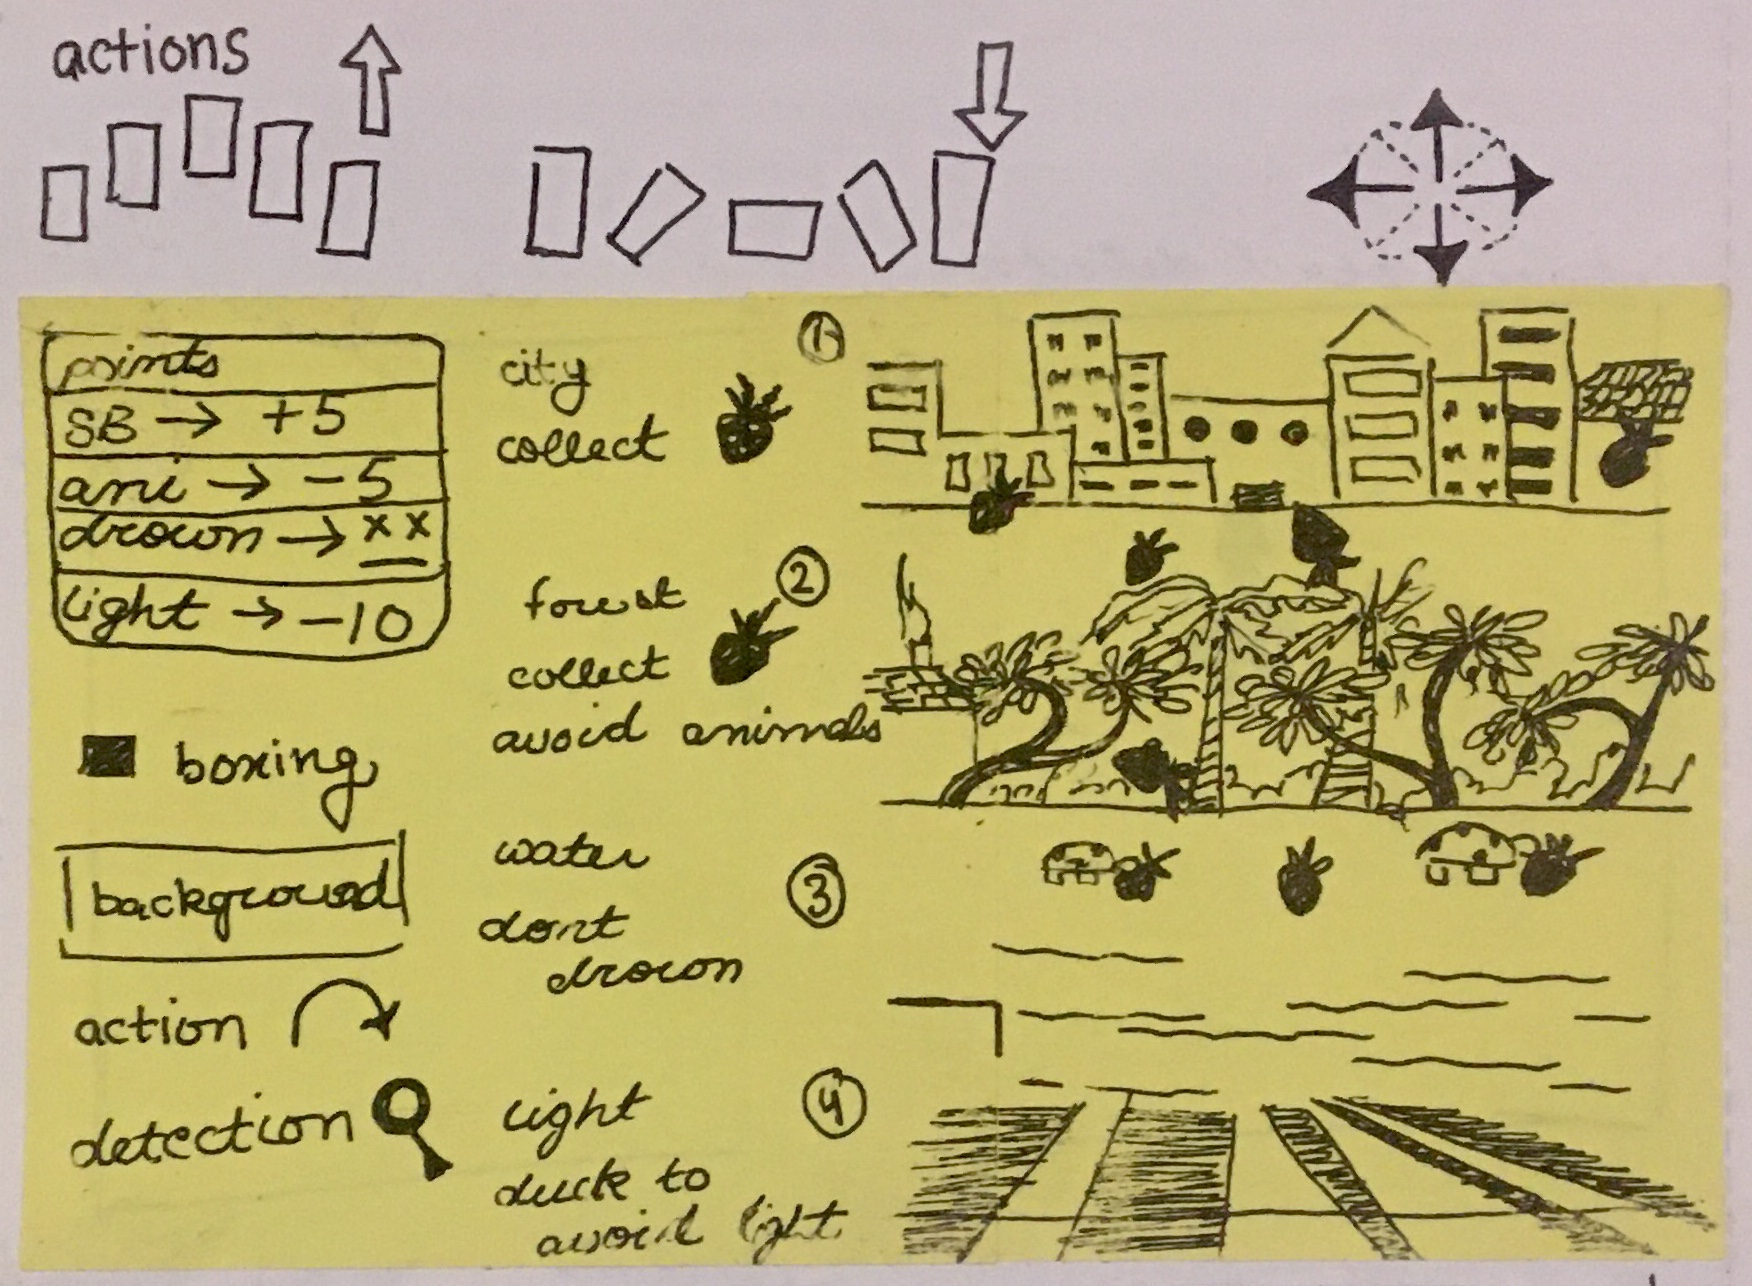 actions
points
SB → +5
ani → -5
drown → x x
light → -10
boxing
background
action
detection
1
city
collect
2
forest
collect
avoid animals
3
water
dont
drown
4
light
duck to
avoid light